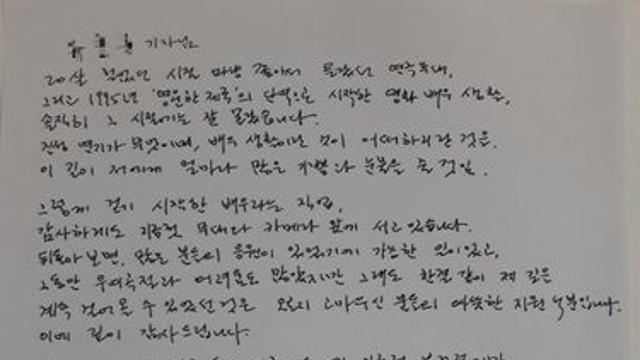 기자님
20살 철없던 시절 마냥 좋아서 올랐던 연극무대,
그리고 1995년 '영원한 제국'의 단역으로 시작한 영화 배우 생활,
솔직히 그 시절에는 잘 몰랐습니다.
진정 연기가 무엇이며, 배우 생활이란 것이 어떠하리란 것은.
이 길이 저에게 얼마나 많은 기쁨과 눈물을 줄 것임.
그렇게 걷기 시작한 배우라는 직업,
감사하게도 지금껏 무대와 카메라 앞에 서고 있습니다.
뒤돌아보면, 많은 분들의 응원이 있었기에 가능한 일이었고,
그동안 우여곡절과 어려움도 많았지만 그래도 한결 같이 제 길은
계속 걸어올 수 있었던 것은 오직 고마우신 분들의 따뜻한 지원 덕분입니다.
이에 깊이 감사드립니다.